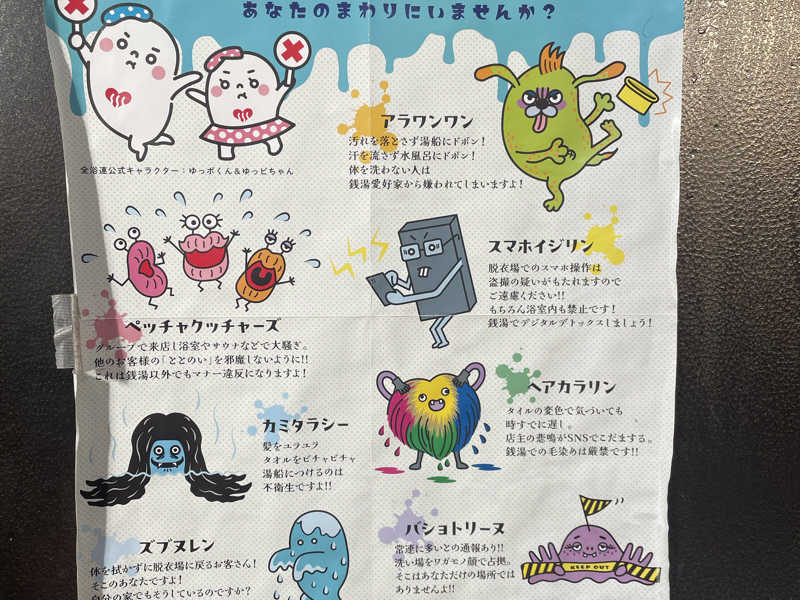 あなたのまわりにいませんか？
全浴連公式キャラクター：ゆっポくん&ゆっピちゃん
アラワンワン
汚れを落とさず湯船にドボン！
汗を流さず水風呂にドボン！
体を洗わない人は
銭湯愛好家から嫌われてしまいますよ！
ペッチャクッチャーズ
グループで来店し浴室やサウナなどで大騒ぎ。
他のお客様の「ととのい」を邪魔しないように!!
これは銭湯以外でもマナー違反になりますよ！
スマホイジリン
脱衣場でのスマホ操作は
盗撮の疑いがもたれますので
ご遠慮ください!!
もちろん浴室内も禁止です！
銭湯でデジタルデトックスしましょう！
カミタラシー
髪をユラユラ
タオルをビチャビチャ
湯船につけるのは
不衛生ですよ!!
ヘアカラリン
タイルの変色で気づいても
時すでに遅し。
店主の悲鳴がSNSでこだまする。
銭湯での毛染めは厳禁です!!
ズブヌレン
体を拭かずに脱衣場に戻るお客さん！
そこのあなたですよ！
自分の家でもそうしているのですか？
バショトリーヌ
常連に多いとの通報あり!!
洗い場をワガモノ顔で占拠。
そこはあなただけの場所では
ありませんよ!!
KEEP OUT